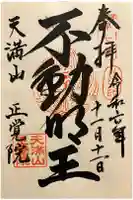 奉拝
令和六年
十一月十一日
不動明王
天満山
正覚院
天満山